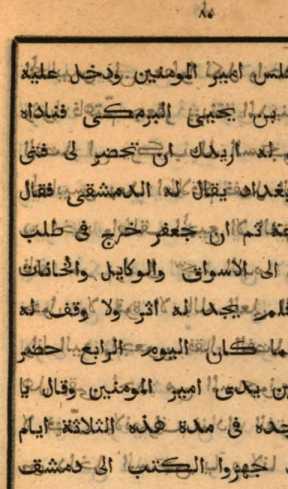 ٨٥
جلس امير المومنين ودخل عليه
بن يحيى البرمكى فناداه
له اريدك ان تحضر لى فتى
بغداد يقال له الدمشقى فقال
ثم ان جعفر خراج فى طلب
الى الاسواق والوكايل والخانات
فلم يجد له اثر ولا وقف له
ما كان اليوم الرابع حضر
ين يدى امير المومنين وقال يا
جده فى مدة هذه الثلاثة ايام
جهزوا الكتب الى دمشق